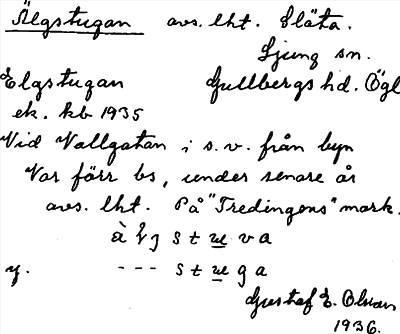 Älgstugan avs. lht. Släta.
Ljung sn.
Elgstugan Gullbergs hd. Ögl
ek. kb 1935
Vid Vallgatan i s.v. från byn
Var förr bs, under senare år
avs. lht. På "Tredingens" mark.
s t u v a
y. --- s t u g a
Gustaf E. Olsson
1936.